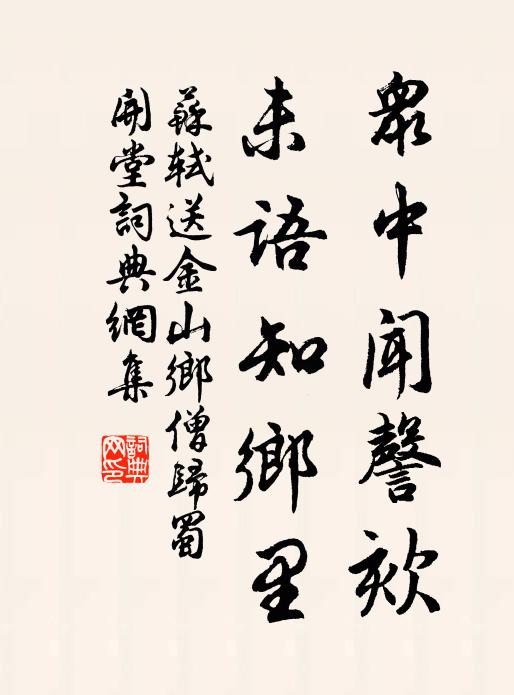 眾中聞謦欬
未語知鄉里
蘇軾送金山鄉僧歸蜀
開堂詞典網集
詞典網印